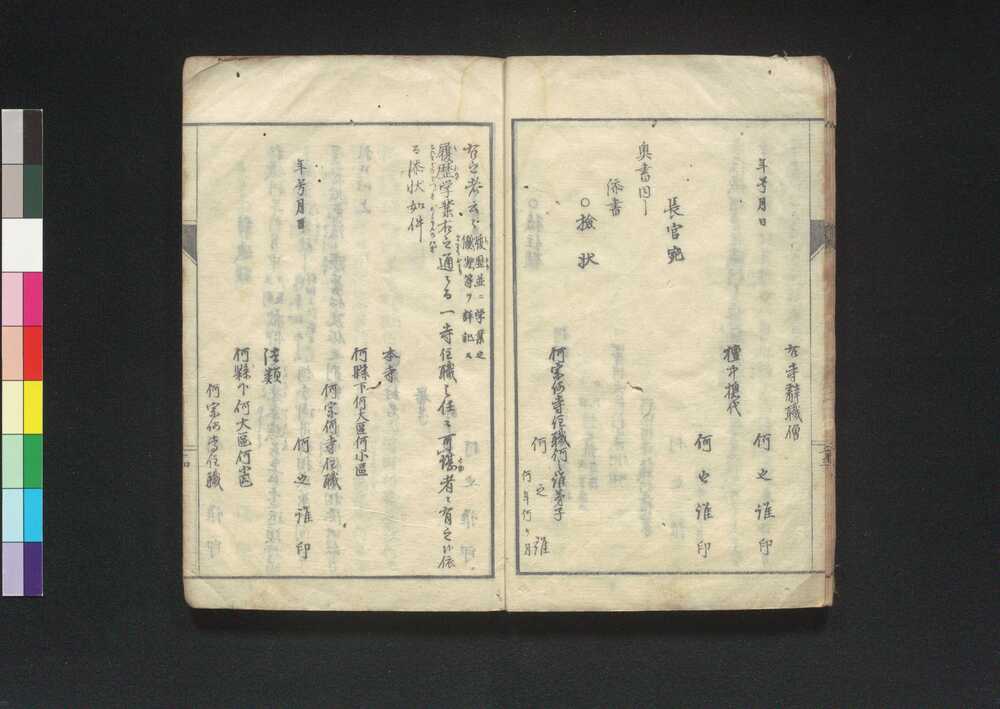 年号月日
右寺辞職僧
何之誰印
檀中惣代
何之誰印
長官宛
奥書同シ
添書
○撿状
何宗何寺住職何之誰弟子
何之誰
何年何ヶ月
右之者云々
履歴並ニ学業之
儀期等ヲ詳記ス
履歴学業右之通ニ而一寺住職之任ニ可堪者ニ有之候依
而添状如件
年号月日
本寺
何縣下何大區何小區
何宗何寺住職
何之誰印
法類
何縣下何大區何小區
何宗何寺住職